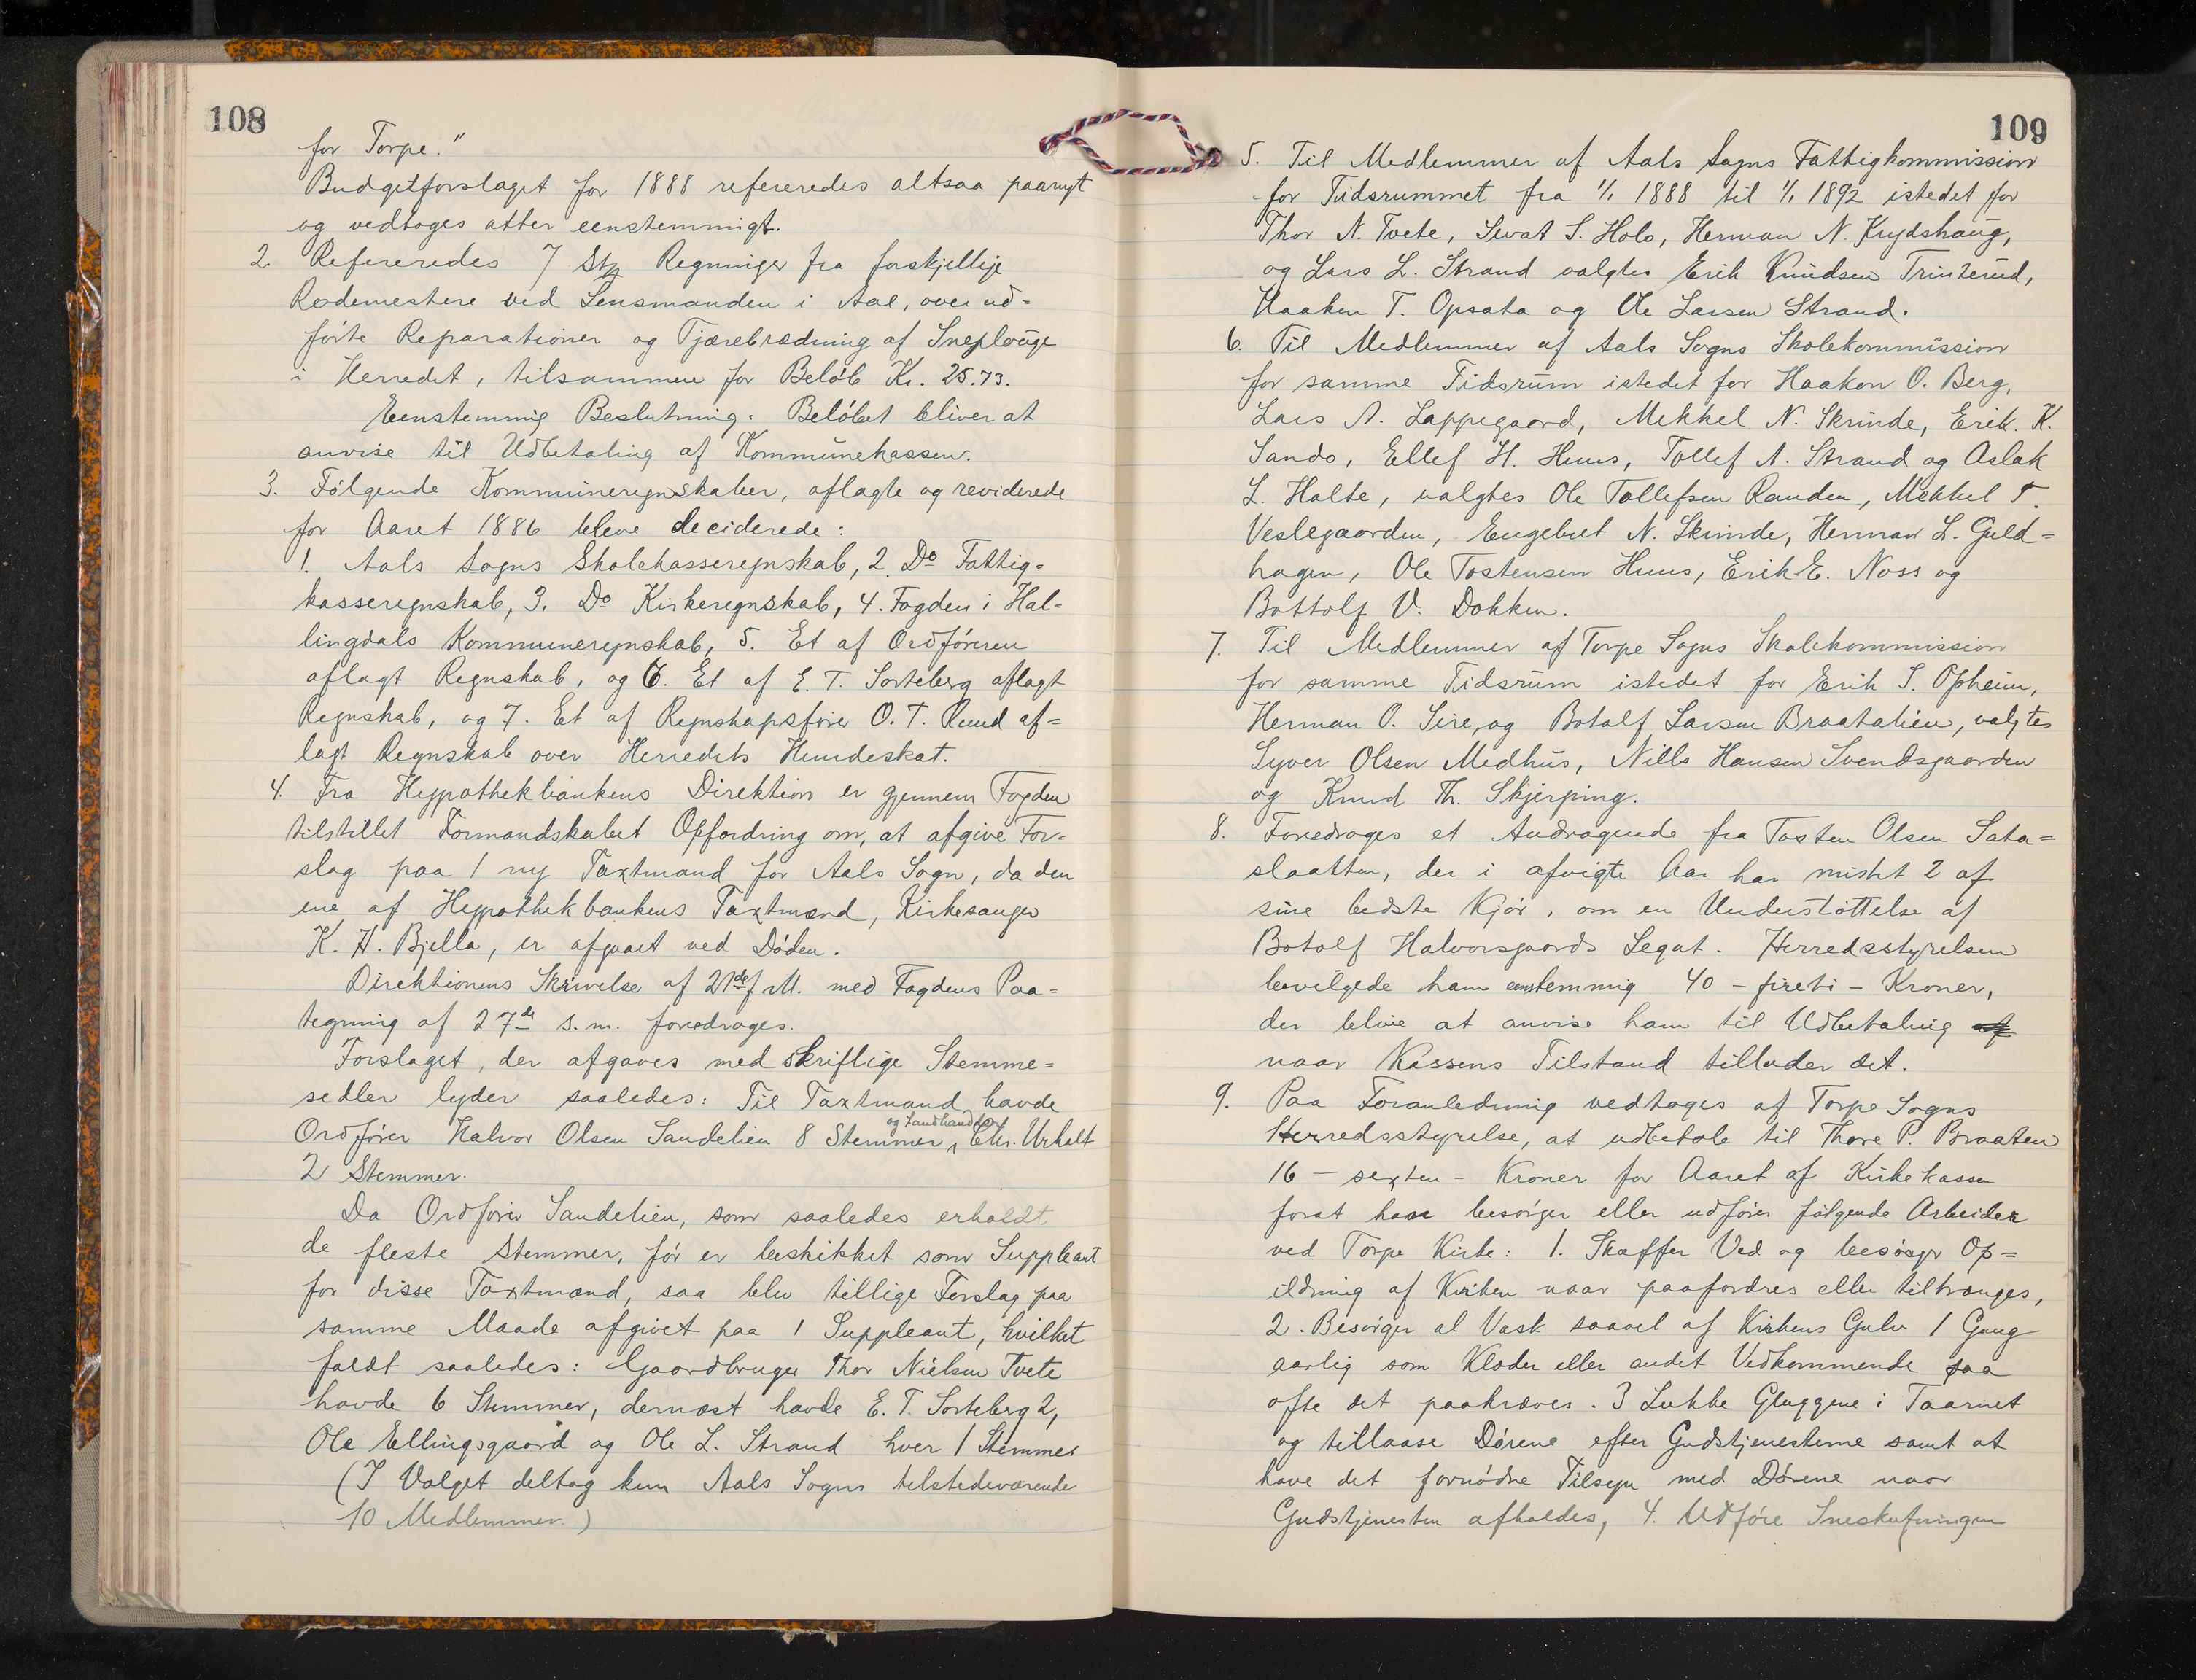 108
for Torpe."
Budgetforslaget for 1888 refereredes altsaa paanyt
og vedtoges atter eenstemmigt.
2. Refereredes 7 Stk Regninger fra forskjellige
Rodemestere ved Lensmanden i Aal, over ud-
förte Reparationer og Tjærebrædning af Sneplouge
i Herredet, tilsammen for Belöb Kr. 25.73.
Eenstemmig Beslutning: Belöbet bliver at
anvise til Udbetaling af Kommunekassen.
3. Fölgende Kommuneregnskaber, aflagte og reviderede
for Aaret 1886 bleve deciderede:
1. Aals Sogns Skolekasseregnskab, 2. Do Fattig-
kasseregnskab, 3. Do Kirkeregnskab, 4. Fogden i Hal-
lingdals Kommuneregnskab, 5. Et af Ordföreren
aflagt Regnskab, og 6. Et af E. T. Sorteberg aflagt
Regnskab, og 7. Et af Regnskapsförer O. T. Ruud af-
lagt Regnskab over Herredets Hundeskat.
4. Fra Hypothekbankens Direktion er gjennem Fogden
tilstillet Formandskabet Opfordring om, at afgive For-
slag paa 1 ny Taxtmand for Aals Sogn, da den
ene af Hypothekbankens Taxtmænd, Kirkesanger
K. H. Bjella, er afgaaet ved Döden.
Direktionens Skrivelse af 21de f. M. med Fogdens Paa-
tegning af 27de s.m. foredroges.
Forslaget, der afgaves med skriftlige Stemme-
sedler lyder saaledes: Til Taxtmand havde
Ordförer Halvor Olsen Sandelien 8 Stemmer, og Landhandler Chr. Urholt
2 Stemmer.
Da Ordförer Sandelien, som saaledes erholdt
de fleste Stemmer, för er beskikket som Suppleant
for disse Taxtmænd, saa blev tillige Forslag paa
samme Maade afgivet paa 1 Suppleant, hvilket
faldt saaledes: Gaardbruger Thor Nielsen Tvete
havde 6 Stemmer, dernæst havde E. T. Sorteberg 2,
Ole Ellingsgaard og Ole L. Strand hver 1 Stemmer
(I Valget deltog kun Aals Sogns tilstedeværende
10 Medlemmer.)
109
5. Til Medlemmer af Aals Sogns Fattigkommission
for Tidsrummet fra 1/1 1888 til 1/1 1892 istedet for
Thor N. Tvete, Sevat S. Holo, Herman N. Krydshaug,
og Lars L. Strand valgtes Erik Knudsen Trinterud,
Haaken T. Opsata og Ole Larsen Strand.
6. Til Medlemmer af Aals Sogns Skolekommission
for samme Tidsrum istedet for Haakon O. Berg,
Lars A. Lappegaard, Mekkel N. Skrinde, Erik K.
Sando, Ellef H. Huus, Tollef A. Strand og Aslak
L. Holte, valgtes Ole Tollefsen Randen, Mekkel T.
Veslegaarden, Engebret N. Skrinde, Herman L. Guld-
hagen, Ole Tostensen Huus, Erik E. Noss og
Bottolf V. Dokken.
7. Til Medlemmer af Torpe Sogns Skolekommission
for samme Tidsrum istedet for Erik S. Opheim,
Herman O. Sire, og Botolf Larsen Braatalien, valgtes
Syver Olsen Medhus, Nills Hansen Svendsgaarden
og Knud Th. Skjerping.
8. Foredroges et Andragende fra Tosten Olsen Sata-
slaatten, der i afvigte Aar har mistet 2 af
sine bedste Kjör, om en Understöttelse af
Botolf Halvorsgaards Legat. Herredsstyrelsen
bevilgede ham enstemmig 40 - fireti - Kroner,
der blive at anvise ham til Udbetaling af
naar Kassens Tilstand tillader det.
9. Paa Foranledning vedtoges af Torpe Sogns
Herredsstyrelse, at udbetale til Thore P. Braaten
16 - sexten - Kroner for Aaret af Kirkekassen
forat han besörger eller udförer fölgende Arbeider
ved Torpe Kirke: 1. Skaffer Ved og besörger Op-
ildning af Kirken naar paafordres eller tiltrænges,
2. Besörger al Vask saavel af Kirkens Gulv 1 Gang
aarlig som Klæder eller andet Vedkommende saa
ofte det paakræves. 3 Lukke Gluggene i Taarnet
og tillaase Dörene efter Gudstjenesterne samt at
have det fornödne Tilsyn med Dörene naar
Gudstjenesten afholdes, 4. Udföre Sneskufningen